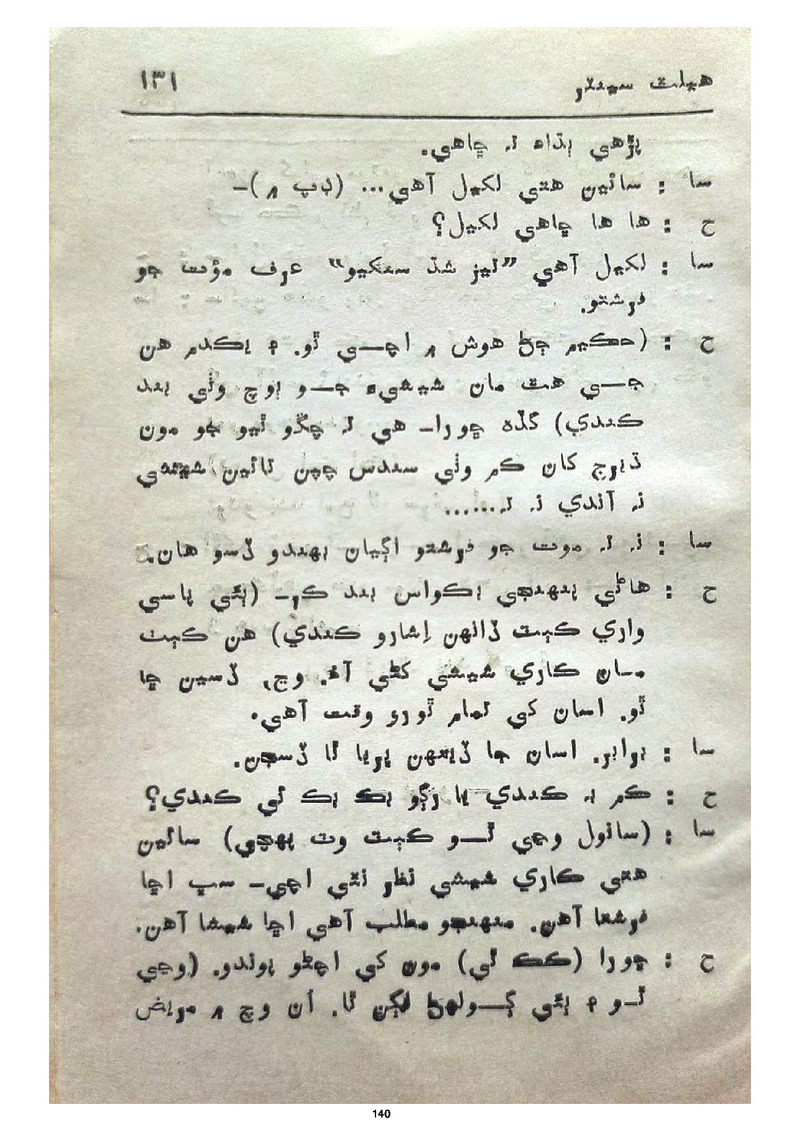 هيلٿ سينٽر ۱۳۱
پڙهي ٻڌاءِ تہ ڇاهي.
سا : سائين هتي لکيل آهي... (ڊپ ۾)ــ
ح : ها ها ڇاهي لکيل؟
سا : لکيل آهي ”ليز شڌ سنکيو“ عرف مؤت جو
فرشتو.
ح : (حڪيم ڄڻ هوش ۾ اچــي ٿو. ۽ يڪدم هن
جــي هٿ مان شيشيءَ جــو ٻوڄ وٺي بند
ڪندي) گڏهہ ڇورا۔ هي تہ چڱو ٿيو جو مون
ڏيرج کان ڪم وٺي سندس چپن تائين شيشي
نہ آندي نہ تہ.......
سا : نہ تہ موت جو فرشتو اڳيان بهندو ڏسو هان.
ح : هاڻي پنهنجي بڪواس بند ڪر۔ (ٻئي پاسي
واري ڪٻٽ ڏانهن اِشارو ڪندي) هن ڪٻٽ
مــان ڪاري شيشي کڻي آءُ. وڃ، ڏسين ڇا
ٿو. اسان کي تمام ٿورو وقت آهي.
سا : برابر. اسان جا ڏينهن پريا ٿا ڏسجن.
ح : ڪم بہ ڪندي يا رڳو بڪ بڪ ئي ڪندي؟
سا : (سانول وڃي ٿــو ڪٻٽ وٽ پهچي) سائين
هتي ڪاري شيشي نظر نٿي اچي۔ سڀ اڇا
فرشتا آهن. منهنجو مطلب آهي اڇا شيشا آهن.
ح : ڇورا (ڪڪ ٿي) مون کي اچڻو پوندو. (وڃي
ٿــو ۽ ٻئي ڳــولهڻ لڳن ٿا. اُن وچ ۾ مريض
140